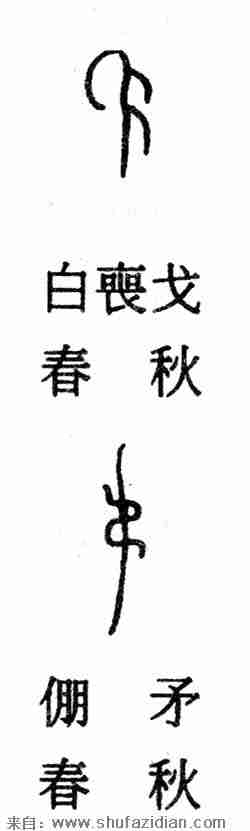 白喪戈
春秋
倗矛
春秋
来自：www.shufazidian.com